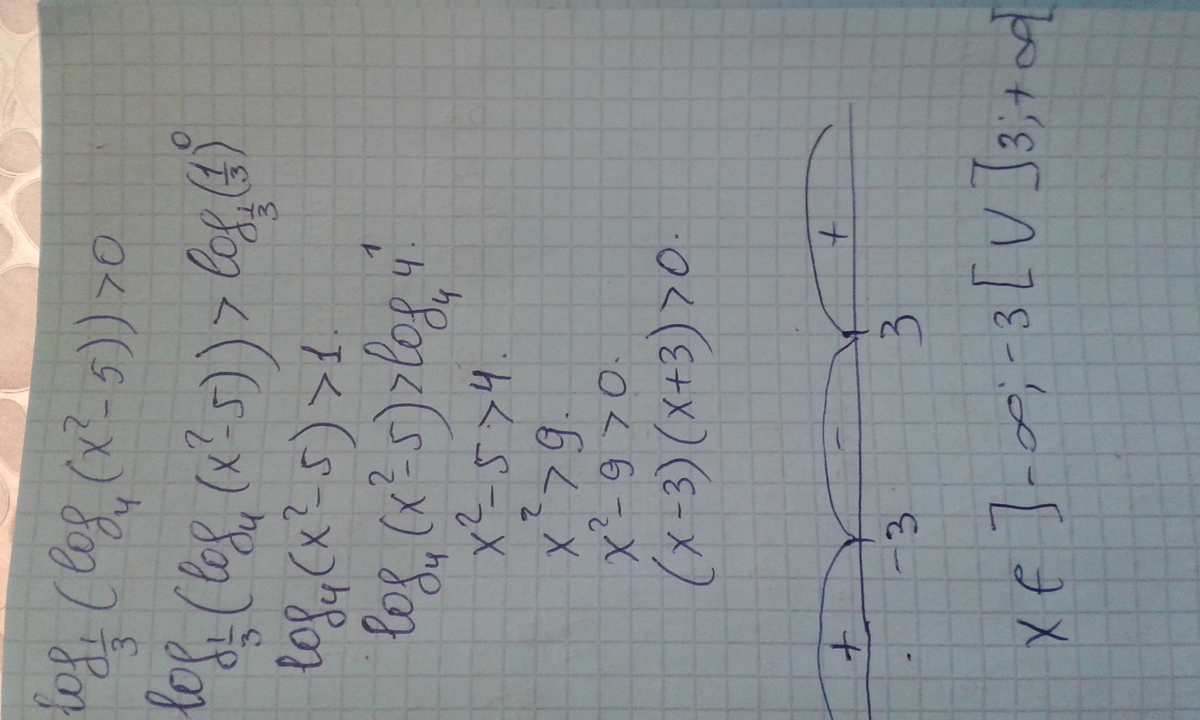 log_{1/3}(log_4(x²-5))>0
log_{1/3}(log_4(x²-5))>log_{1/3}(1/3)^0
log_4(x²-5)>1.
log_4(x²-5)>log_4 4^1.
x²-5>4.
x²>9.
x²-9>0.
(x-3)(x+3)>0.
+ - +
-3 3
x ∈ ]-∞;-3[ ∪ ]3;+∞[